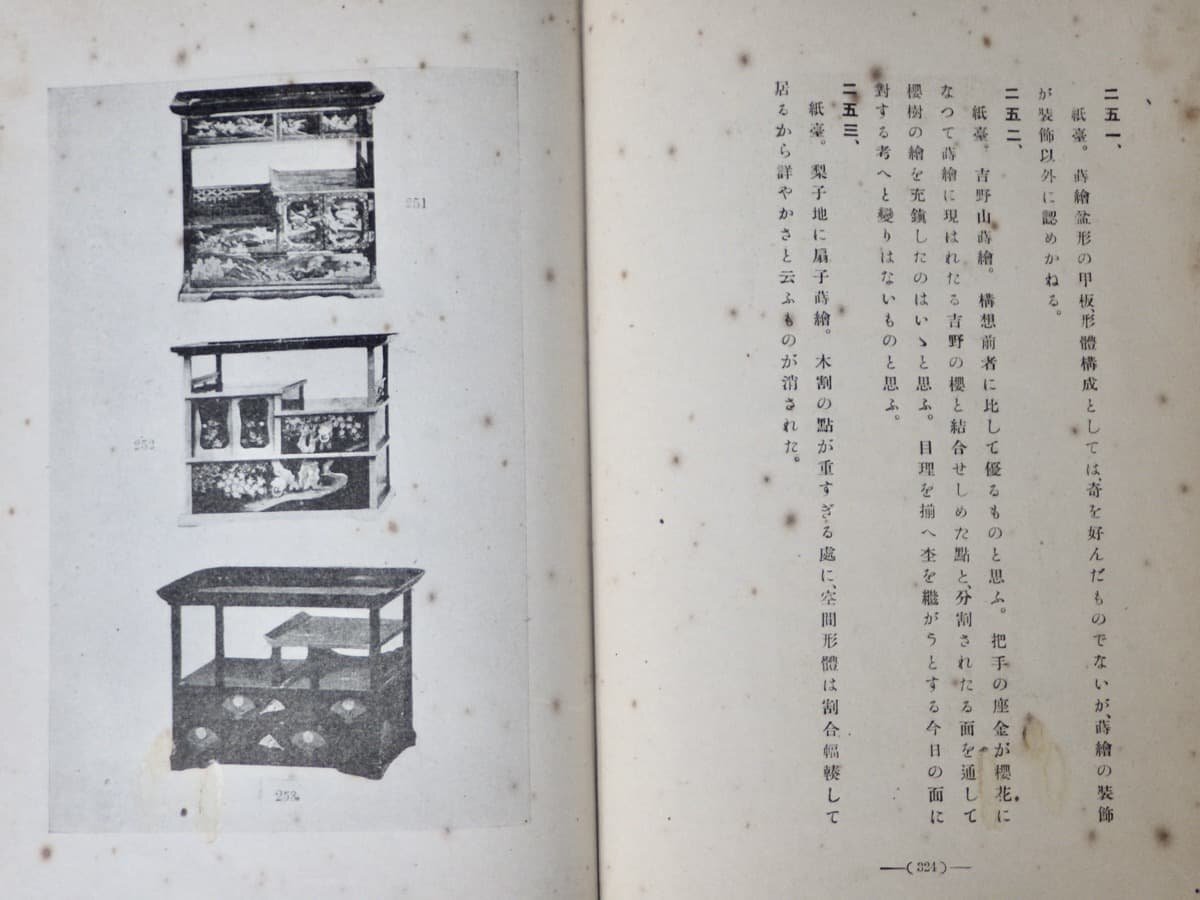 二五一、
紙臺。蒔繪盆形の甲板、形體構成としては、奇を好んだものでないが、蒔繪の裝飾
が裝飾以外に認めかねる。
二五二、
紙臺。吉野山蒔繪。構想前者に比して優るものと思ふ。把手の座金が櫻花に
なつて蒔繪に現はれたる吉野の櫻と結合せしめた點と、分割されたる面を通して
櫻樹の繪を充鎭したのはいゝと思ふ。目理を揃へ杢を繼がうとする今日の面に
對する考へと變りはないものと思ふ。
二五三、
紙臺。梨子地に扇子蒔繪。木割の點が重すぎる處に、空間形體は割合輻輳して
居るから詳やかさと云ふものが消された。
(324)
251
252
253